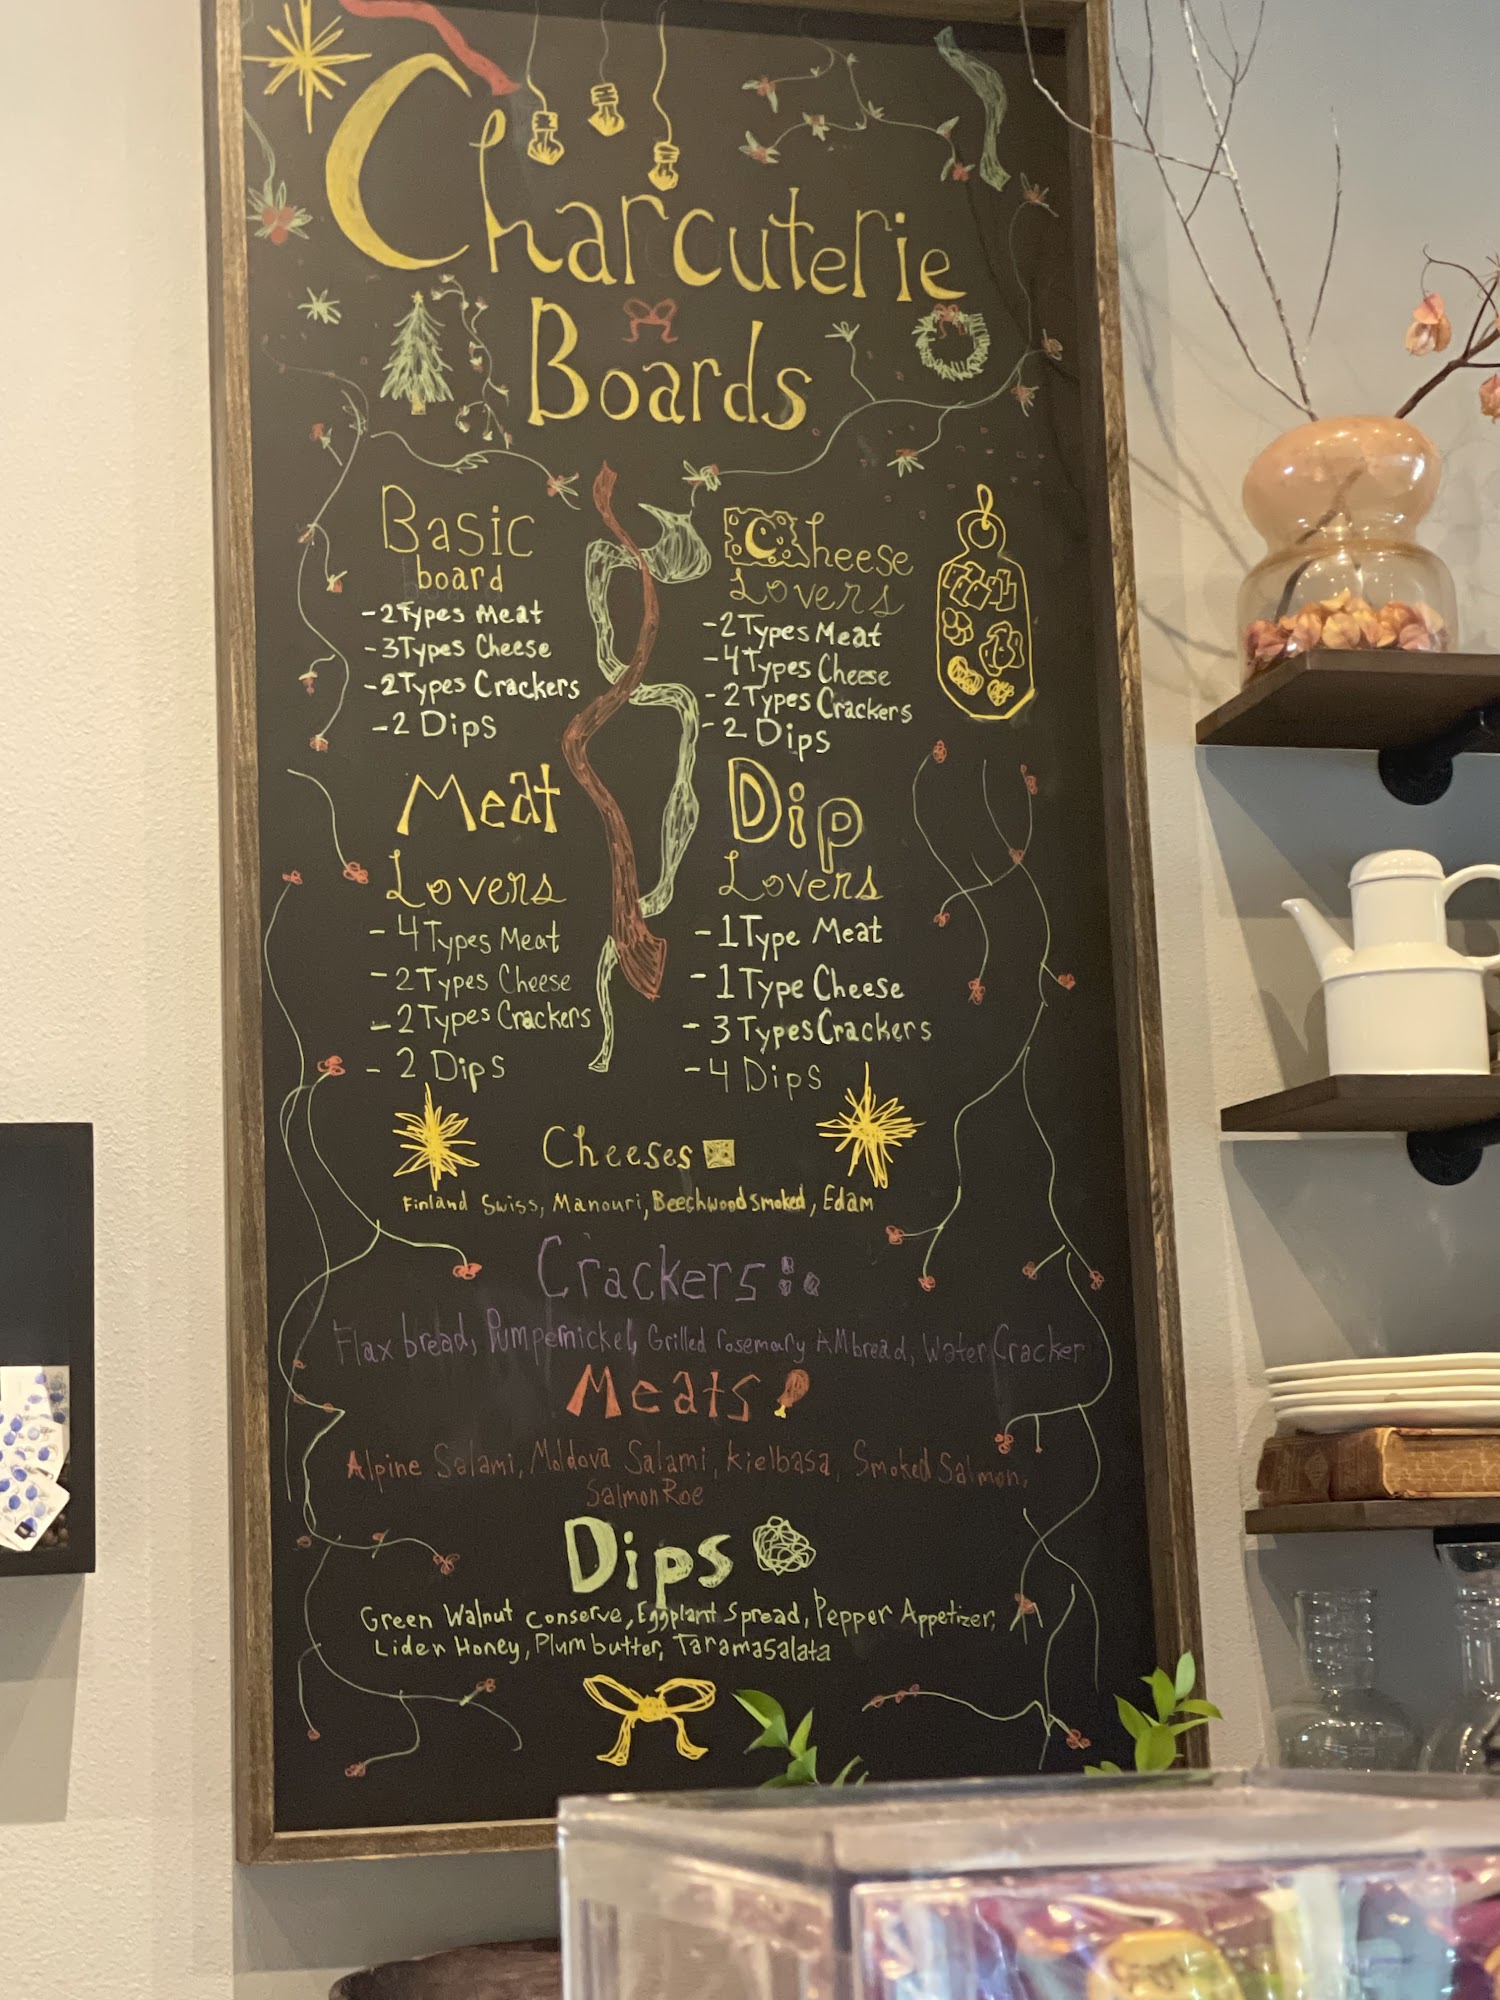 Charcuterie
Boards
Basic
board
-2 Types Meat
-3 Types Cheese
-2 Types Crackers
-2 Dips
Cheese
Lovers
-2 Types Meat
-4 Types Cheese
-2 Types Crackers
-2 Dips
Meat
Lovers
-4 Types Meat
-2 Types Cheese
-2 Types Crackers
-2 Dips
Dip
Lovers
-1 Type Meat
-1 Type Cheese
-3 Types Crackers
-4 Dips
Cheeses
Finland Swiss, Manouri, Beechwood smoked, Edam
Crackers
Flax bread, Pumpernickel, Grilled rosemary AMbread, Water Cracker
Meats
Alpine Salami, Moldova Salami, Kielbasa, Smoked Salmon,
Salmon Roe
Dips
Green Walnut conserve, Eggplant Spread, Pepper Appetizer,
Liden Honey, Plum butter, Taramasalata